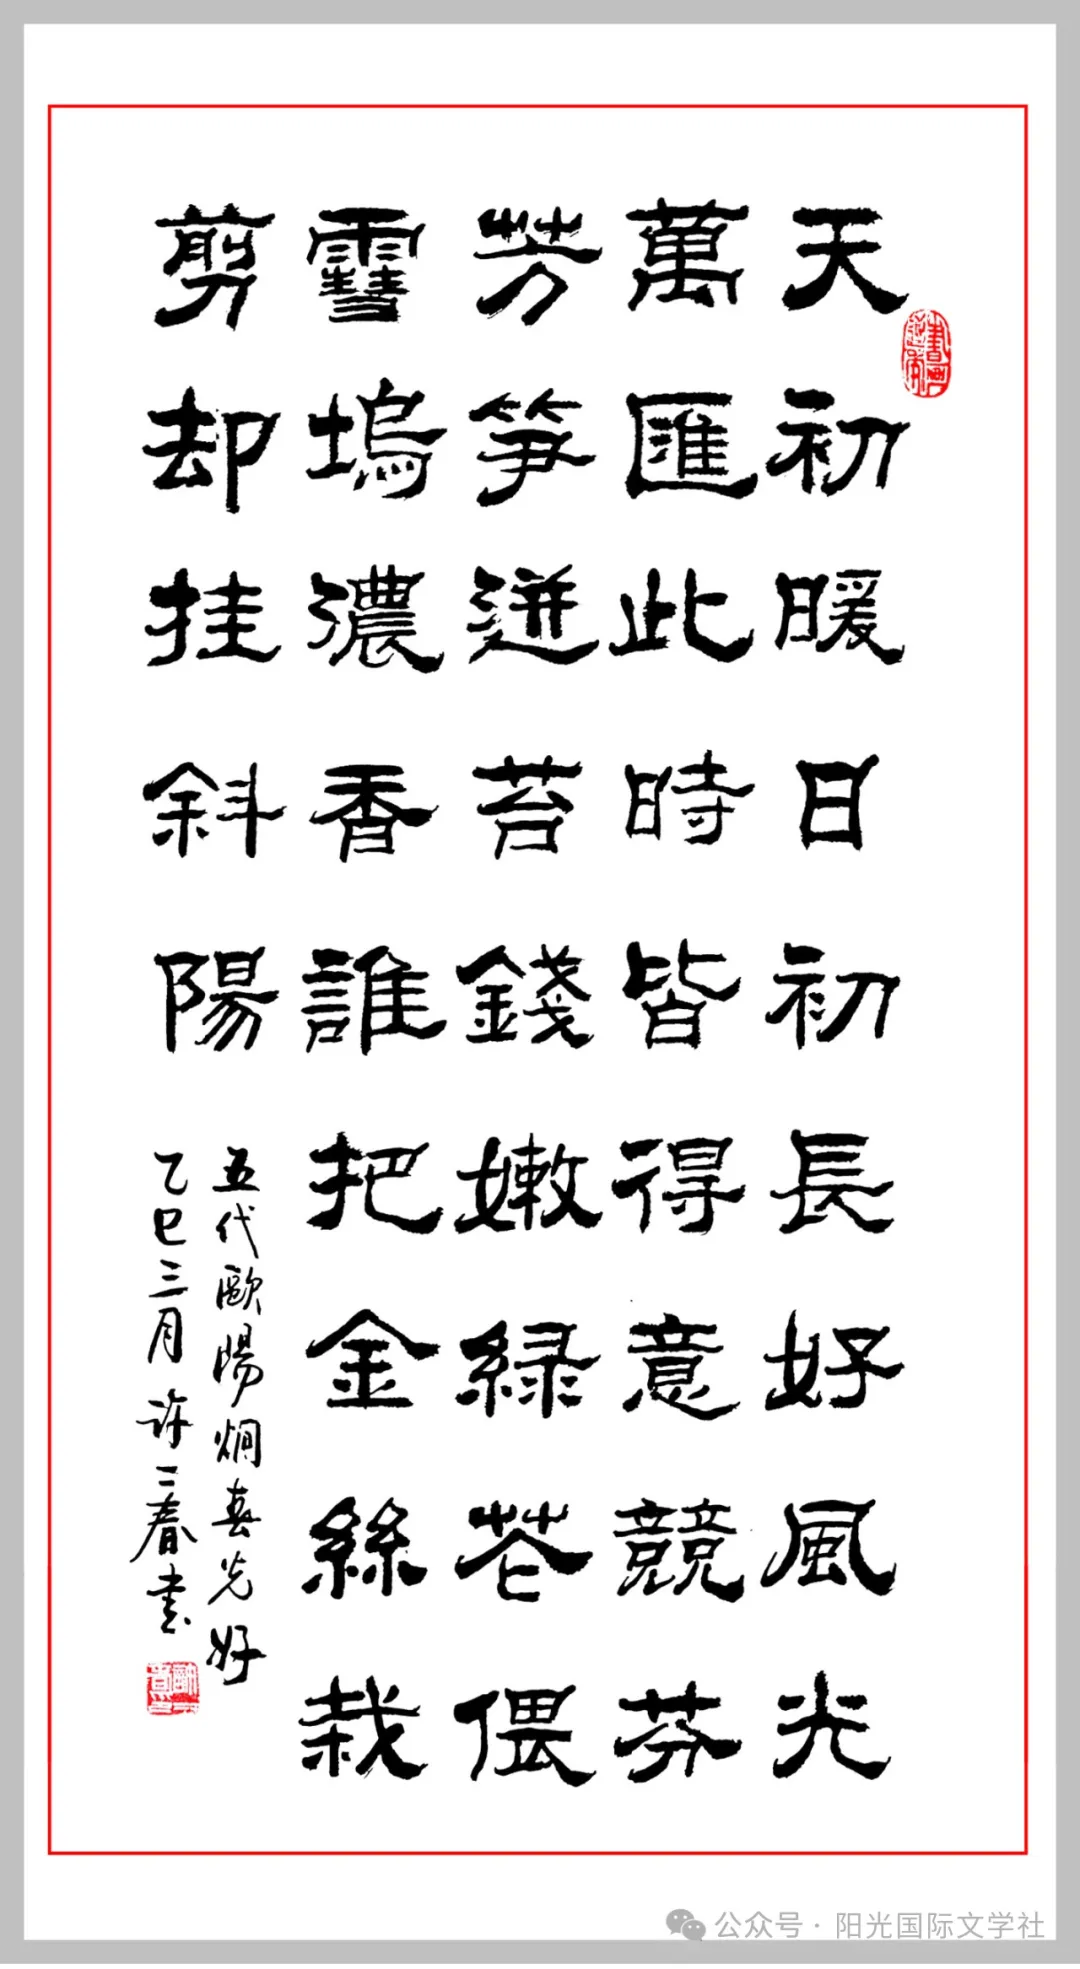 天初暖日初長好風光
萬匯此時皆得意競芬
芳笋迸苔錢嫩綠花偎
雪塢濃香誰把金絲栽
剪却挂斜陽
五代歐陽炯春光好
乙巳三月许二春书
公众号·阳光国际文学社